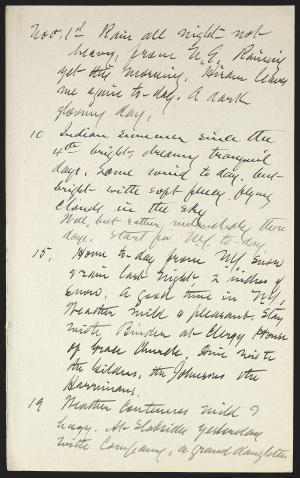 Nov. 1st Rain all night not
heavy, from N.E. Raining
yet this morning. Hiram leaves
me again to-day. A dark
gloomy day.
10 Indian summer since the
4th bright, dreamy tranquil
days. Some wind to day, but
bright with soft fleecy flying
clouds in the sky
Well, but rather melancholy these
days. Start for N.Y. to-day.
15. Home to-day from N.Y. Snow
& rain last night, 2 inches of
snow. A good time in N.Y.
Weather mild & pleasant. Stay
with Binder at Clergy House
of Grace Church. Dine with
the Gilders, the Johnsons the
Harrimans.
19 Weather continues mild &
hazy. At Slabsides yesterday
with company, a granddaughter